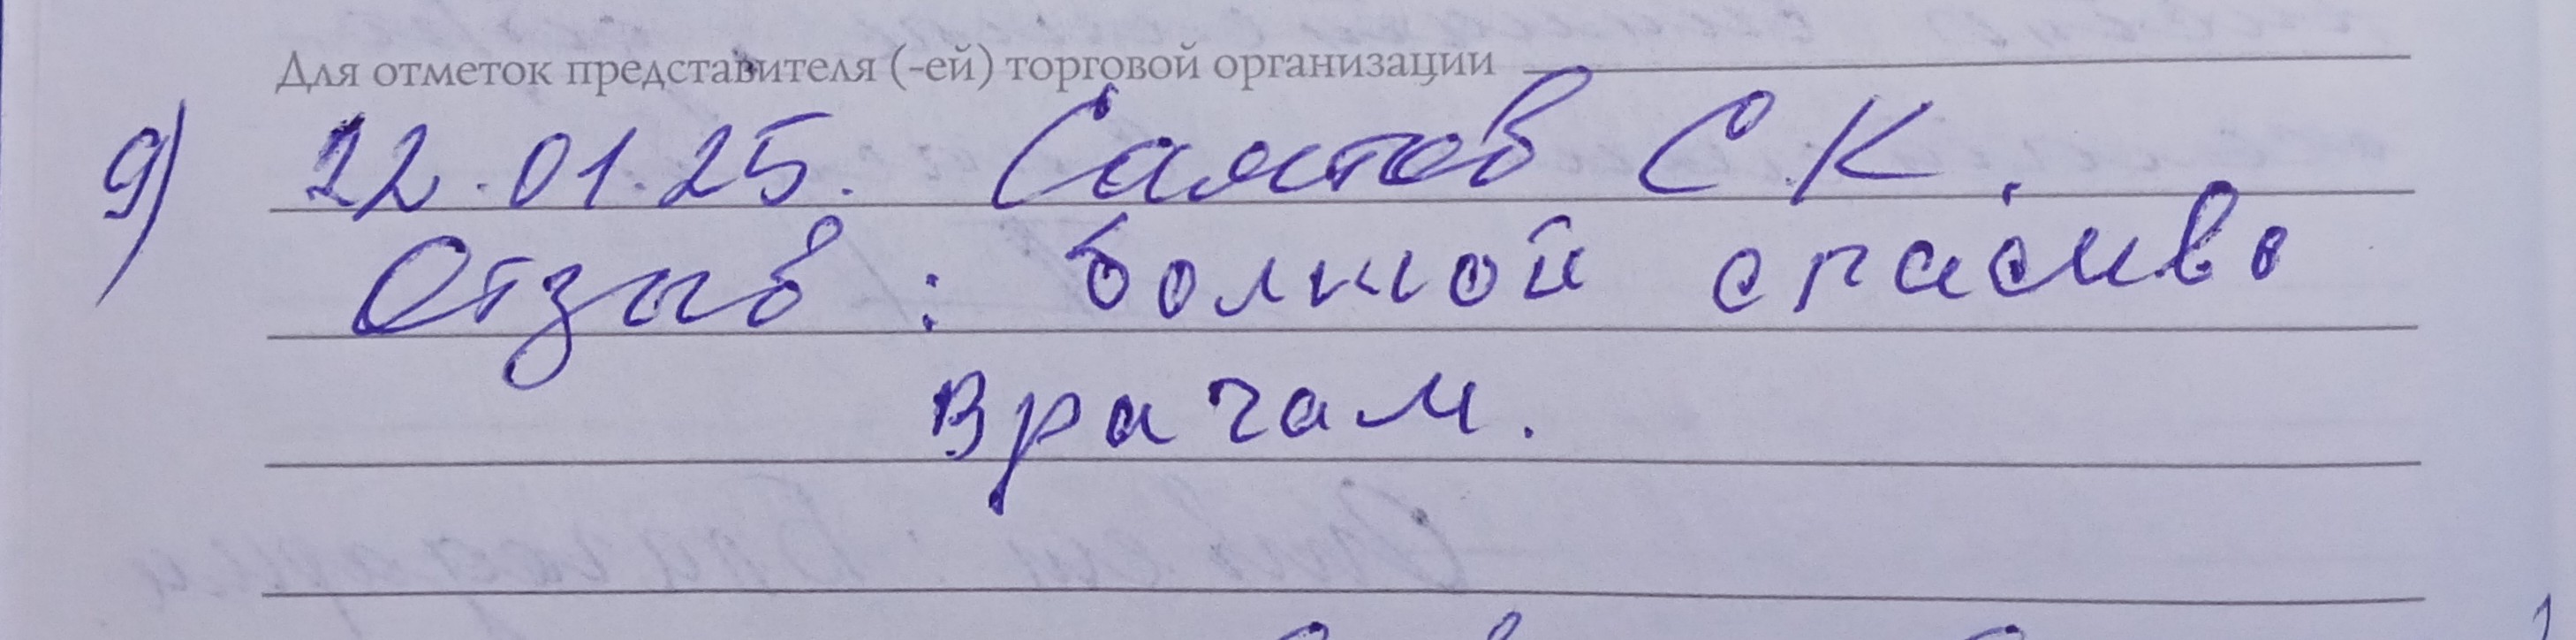 Для отметок представителя (-ей) торговой организации
9) 22.01.25. Саятов С К.
Отзыв: болшой спасиво
врачам.